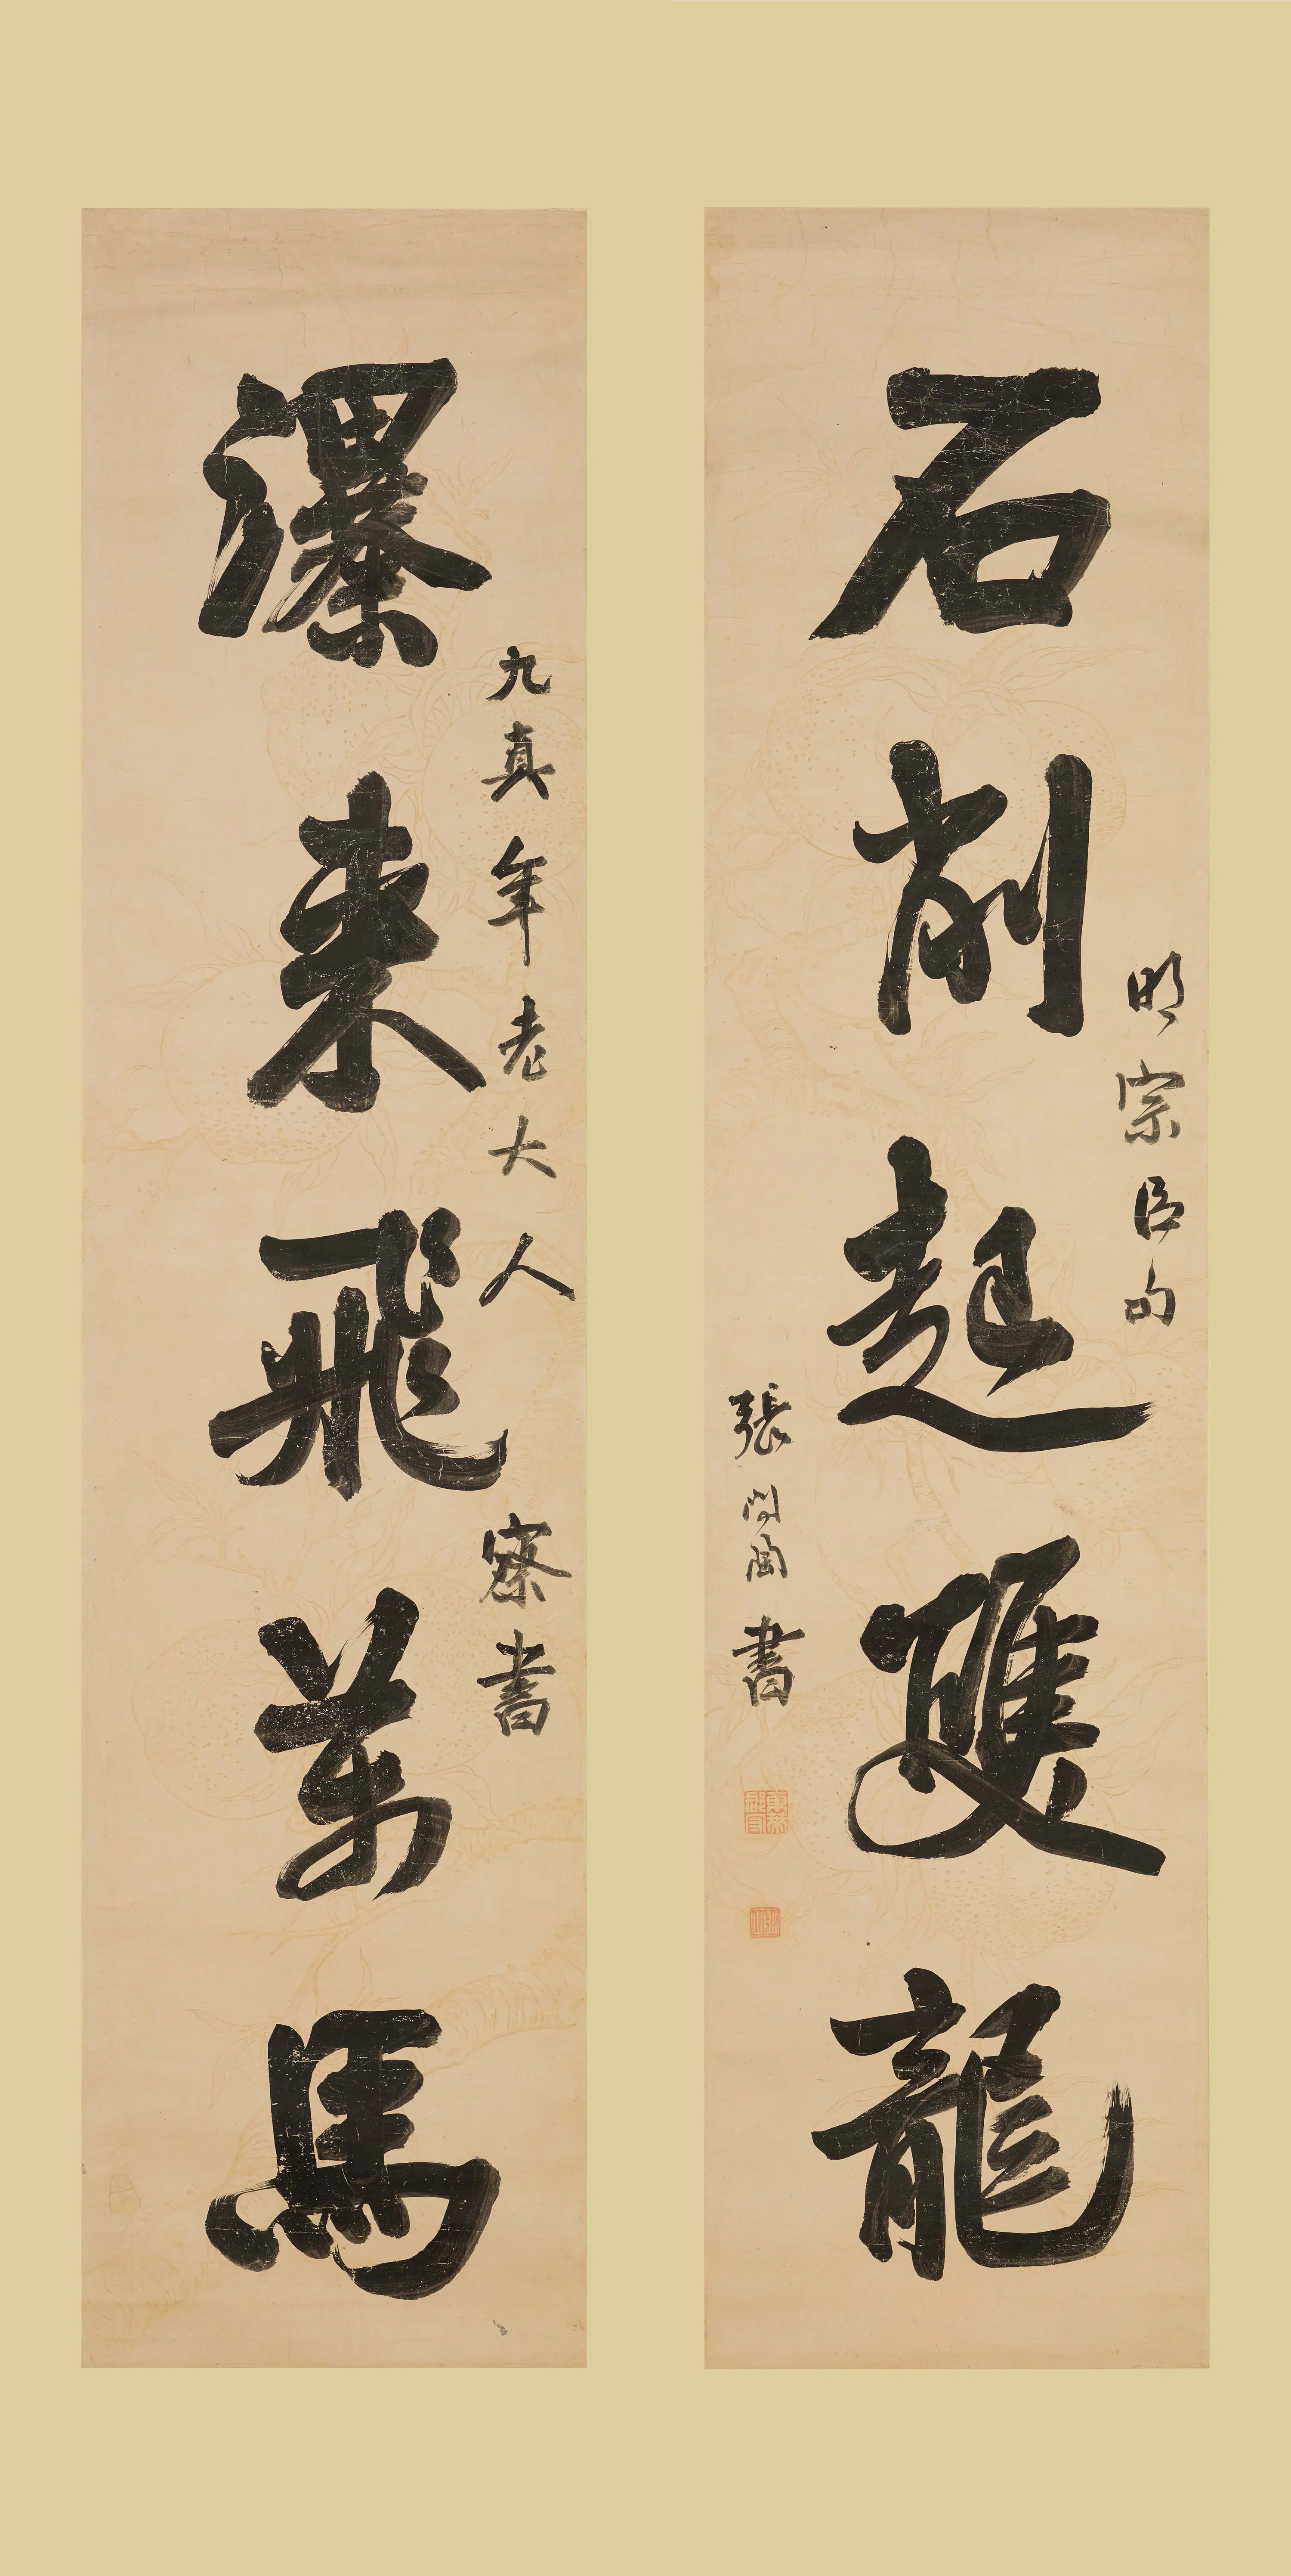 明宗臣句
石削起雙龍
張問陶書
九真年老大人
察書
瀑來飛萬馬